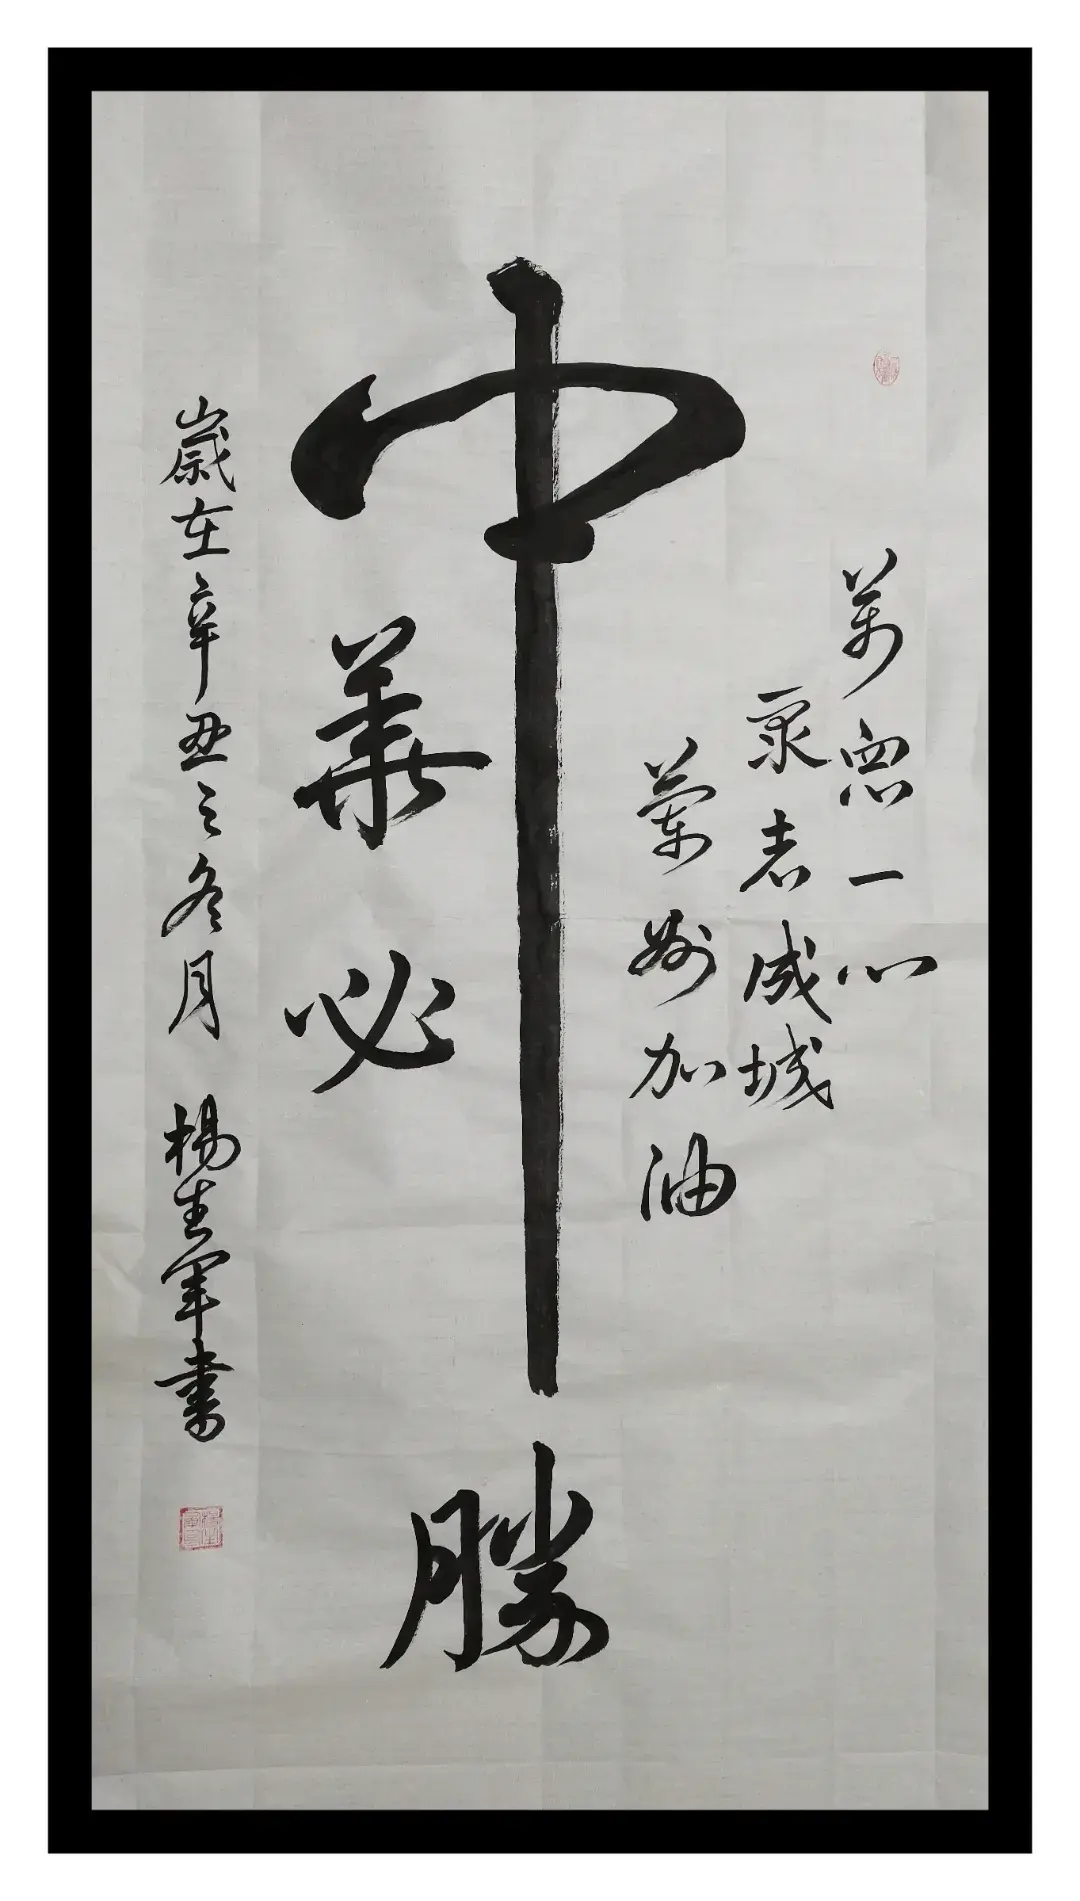 萬眾一心
衆志成城
蘭州加油
中華必勝
歲在辛丑之冬月 楊生軍書